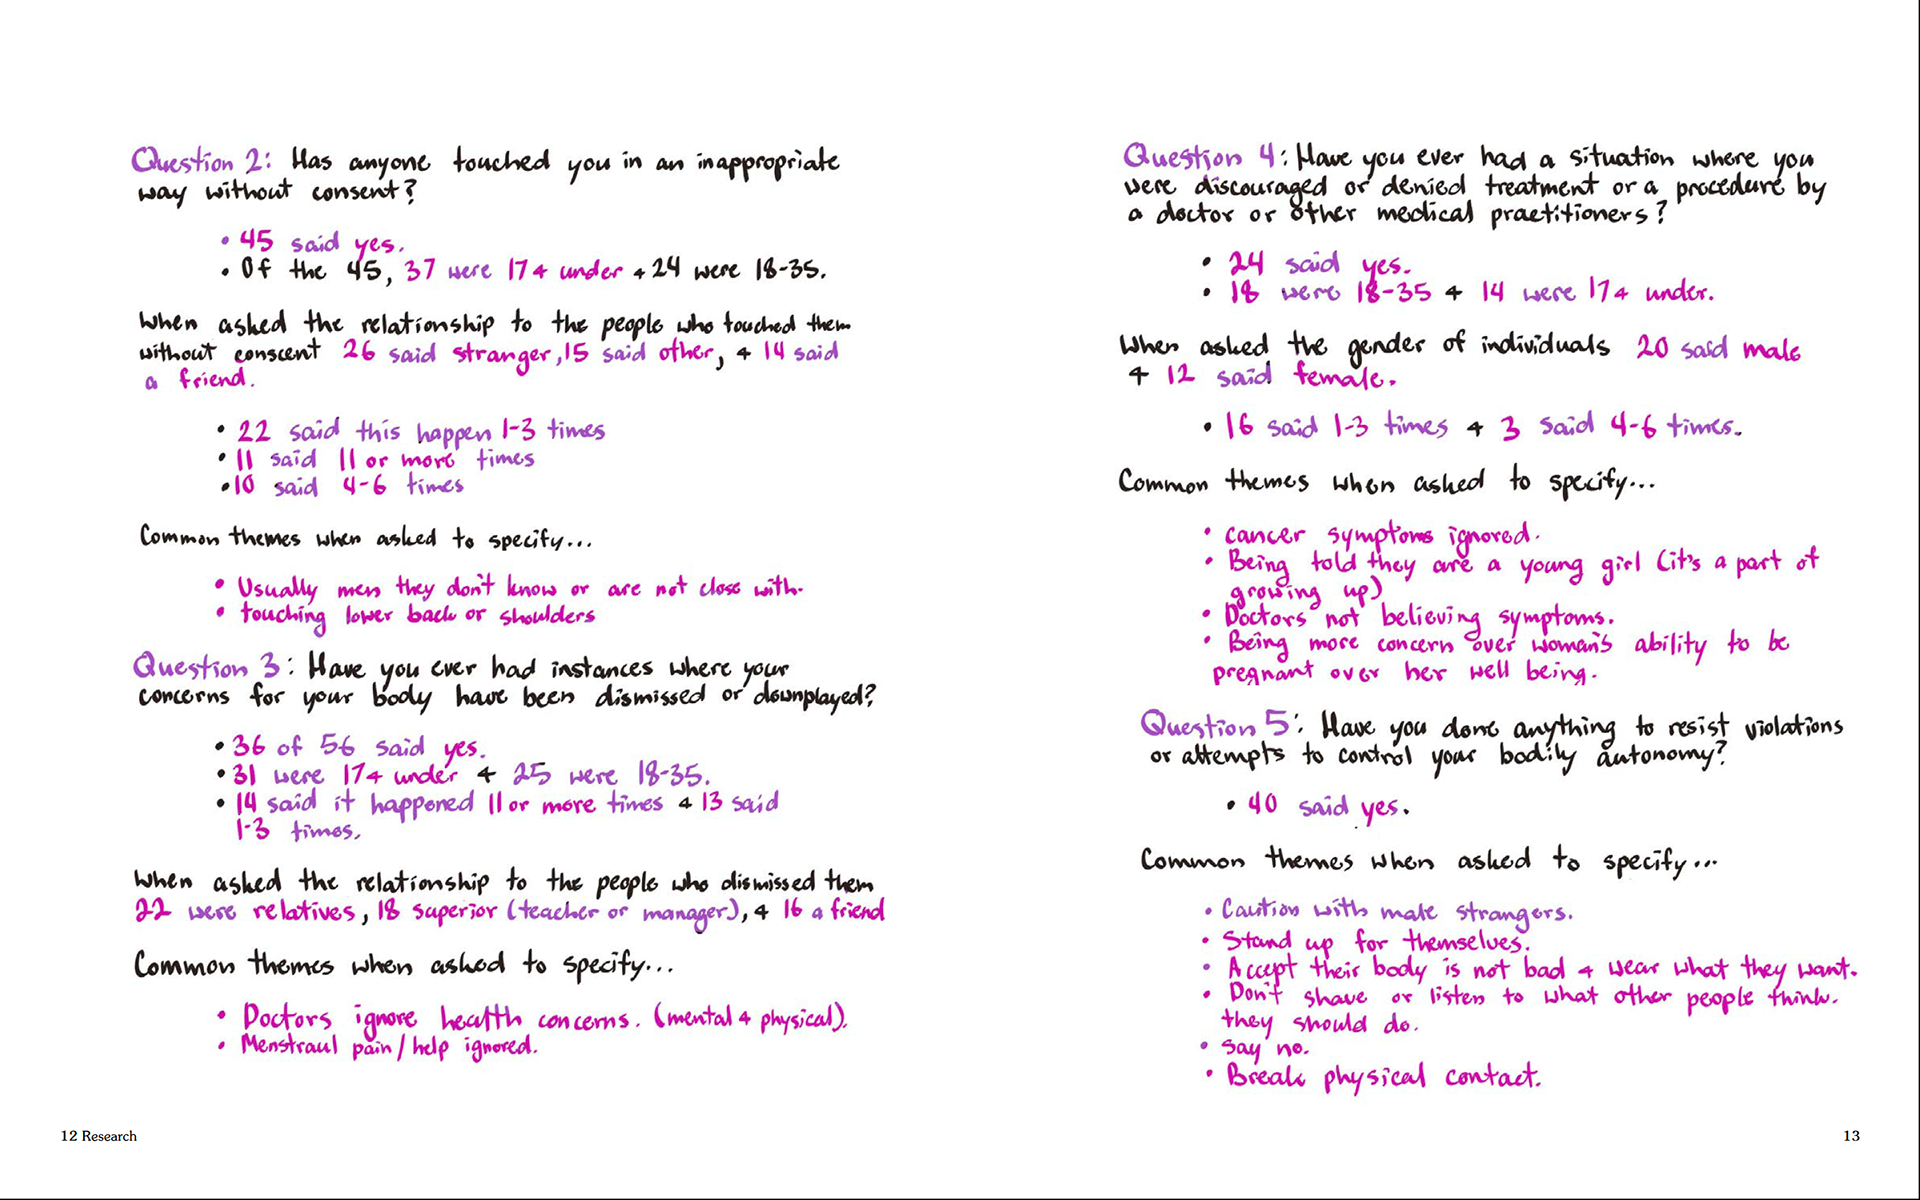 Question 2: Has anyone touched you in an inappropriate
way without consent?
• 45 said yes.
• Of the 45, 37 were 17 + under + 24 were 18-35.
When asked the relationship to the people who touched them
without conscent 26 said stranger, 15 said other, + 14 said
a friend.
• 22 said this happen 1-3 times
• 11 said 11 or more times
• 10 said 4-6 times
Common themes when asked to specify...
• Usually men they don't know or are not close with.
• touching lower back or shoulders
Question 3: Have you ever had instances where your
concerns for your body have been dismissed or downplayed?
• 36 of 56 said yes.
• 31 were 17 + under + 25 were 18-35.
• 14 said it happened 11 or more times + 13 said
1-3 times.
When asked the relationship to the people who dismissed them
22 were relatives, 18 superior (teacher or manager), + 16 a friend
Common themes when asked to specify...
• Doctors ignore health concerns. (mental + physical).
• Menstraul pain/help ignored.
12 Research
Question 4: Have you ever had a situation where you
were discouraged or denied treatment or a procedure by
a doctor or other medical practitioners?
• 24 said yes.
• 18 were 18-35 + 14 were 17 + under.
When asked the gender of individuals 20 said male
+ 12 said female.
• 16 said 1-3 times + 3 said 4-6 times.
Common themes when asked to specify...
• cancer symptoms ignored.
• Being told they are a young girl (it's a part of
growing up)
• Doctors not believing symptoms.
• Being more concern over woman's ability to be
pregnant over her well being.
Question 5: Have you done anything to resist violations
or attempts to control your bodily autonomy?
• 40 said yes.
Common themes when asked to specify...
• Caution with male strangers.
• Stand up for themselves.
• Accept their body is not bad + wear what they want.
• Don't shave or listen to what other people think.
they should do.
• Say no.
• Break physical contact.
13